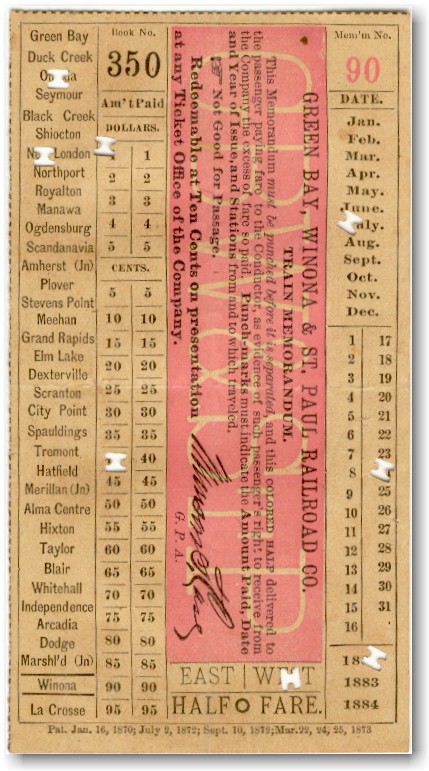 Green Bay
Duck Creek
Seymour
Black Creek
Shiocton
London
Northport
Royalton
Manawa
Ogdensburg
Scandanavia
Amherst (Jn)
Plover
Stevens Point
Meehan
Grand Rapids
Elm Lake
Dexterville
Scranton
City Point
Spauldings
Tremont
Hatfield
Merillan (Jn)
Alma Centre
Hixton
Taylor
Blair
Whitehall
Independence
Arcadia
Dodge
Marshl'd (Jn)
Winona
La Crosse
Book No.
350
Am't Paid
DOLLARS.
1
2 2
3 3
4 4
5 5
CENTS.
5 5
10 10
15 15
20 20
25 25
30 30
35 35
40
45 45
50 50
55 55
60 60
65 65
70 70
75 75
80 80
85 85
90 90
95 95
GREEN BAY, WINONA & ST. PAUL RAILROAD CO.
TRAIN MEMORANDUM.
This Memorandum must be punched before it is separated, and this COLORED HALF delivered to
the passenger paying fare to the Conductor, as evidence of such passenger's right to receive from
the Company the excess of fare so paid. Punch-marks must indicate the Amount Paid, Date
and Year of Issue, and Stations from and to which traveled.
☞ Not Good for Passage.
Redeemable at Ten Cents on presentation
at any Ticket Office of the Company.
G. P. A.
EAST WEST
HALF FARE.
Mem'm No.
90
DATE.
Jan.
Feb.
Mar.
Apr.
May.
June.
July.
Aug.
Sept.
Oct.
Nov.
Dec.
1 17
2 18
3 19
4 20
5 21
6 22
7 23
8
9 25
10 26
11 27
12 28
13 29
14 30
15 31
16
1883
1884
Pat. Jan. 16, 1870; July 2, 1872; Sept. 10, 1872; Mar. 22, 24, 25, 1873